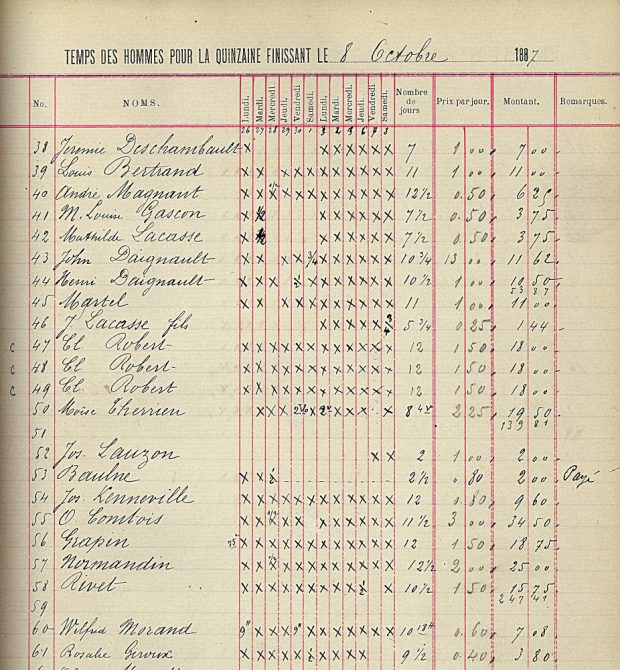 TEMPS DES HOMMES POUR LA QUINZAINE FINISSANT LE 8 Octobre 1887
No. NOMS. Lundi. Mardi. Mercredi. Jeudi. Vendredi. Samedi. Lundi. Mardi. Mercredi. Jeudi. Vendredi Samedi. Nombre de jours Prix par jour. Montant. Remarques.
26 27 28 29 30 1 3 4 5 6 7 8
38 Jeremie Deschambault x x x x x x x 7 1 00 7 00
39 Louis Bertrand x x x x x x x x x x x 11 1 00 11 00
40 André Magnant x x 1/2 x x x x x x x x x x 12 1/2 0.50 6 25
41 M. Louise Gascon x 1/2 x x x x x x 7 1/2 0.50 3 75
42 Mathilde Lacasse x 1/2 x x x x x x 7 1/2 0.50 3 75
43 John Daignault x x x x 3/4 x x x x x x 10 3/4 13 00 11 62
44 Henri Daignault x x x 1/2 x x x x x x x 10 1/2 1 00 10 50
53 87
45 Martel x x x x x x x x x x x 11 1 00 11 00
46 J Lacasse fils x x x x x 3/4 5 3/4 0 25 1 44
c 47 Cl Robert x x x x x x x x x x x x 12 1 50 18 00
c 48 Cl Robert x x x x x x x x x x x x 12 1 50 18 00
c 49 Cl. Robert x x x x x x x x x x x x 12 1 50 18 00
50 Moïse Therrien x x x x x x x x 2 25 19 50
139 81
51
52 Jos. Lauzon x x 2 1 00 2 00
53 Baulne x x 1/2 2 1/2 " 80 2 00 Payé
54 Jos. Kenneville x x x x x x x x x x x x 12 0.80 9 60
55 O. Comtois x x 1/2 x x x x x x x x x 11 1/2 3 00 34 50
56 Grapin x x x x x x x x x x x x 12 1 50 18 75
57 Normandin x x 1/2 x x x x x x x x x x 12 1/2 2 00 25 00
58 Rivet x x x x x x x x x 1/2 x 10 1/2 1 50 15 75
247 41
59
60 Wilfrid Morand 9h x x x 9h x x x x x x x 10 18h 0.60 7 08
61 Rosalie Giroux x x x x x 1/2 x x x x 9 1/2 0.40 3 80